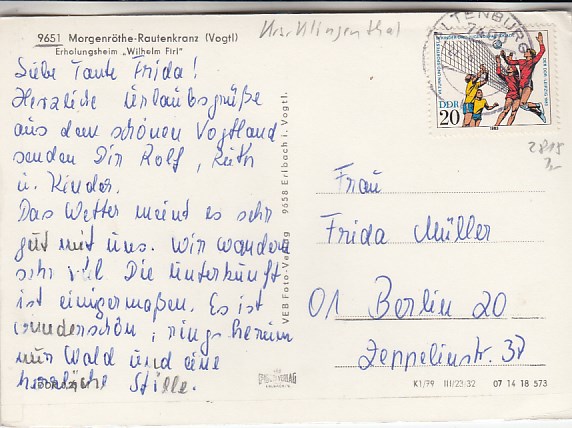 9651 Morgenröthe-Rautenkranz (Vogtl)
Erholungsheim „Wilhelm Firl"
Krs. Klingenthal
Liebe Tante Frida!
Herzliche Urlaubsgrüße
aus dem schönen Vogtland
senden Dir Rolf, Ruth
u. Kinder.
Das Wetter meint es sehr
gut mit uns. Wir wandern
sehr viel. Die Unterkunft
ist einigermaßen. Es ist
wunderschön, rings herum
nur Wald und eine
herrliche Stille.
VEB Foto-Verlag 9658 Erlbach i. Vogtl.
ALTENBURG
DDR
20
1983
2815
Frau
Frida Müller
01 Berlin 20
Zeppelinstr. 37
K1/79 III/23-32 07 14 18 573